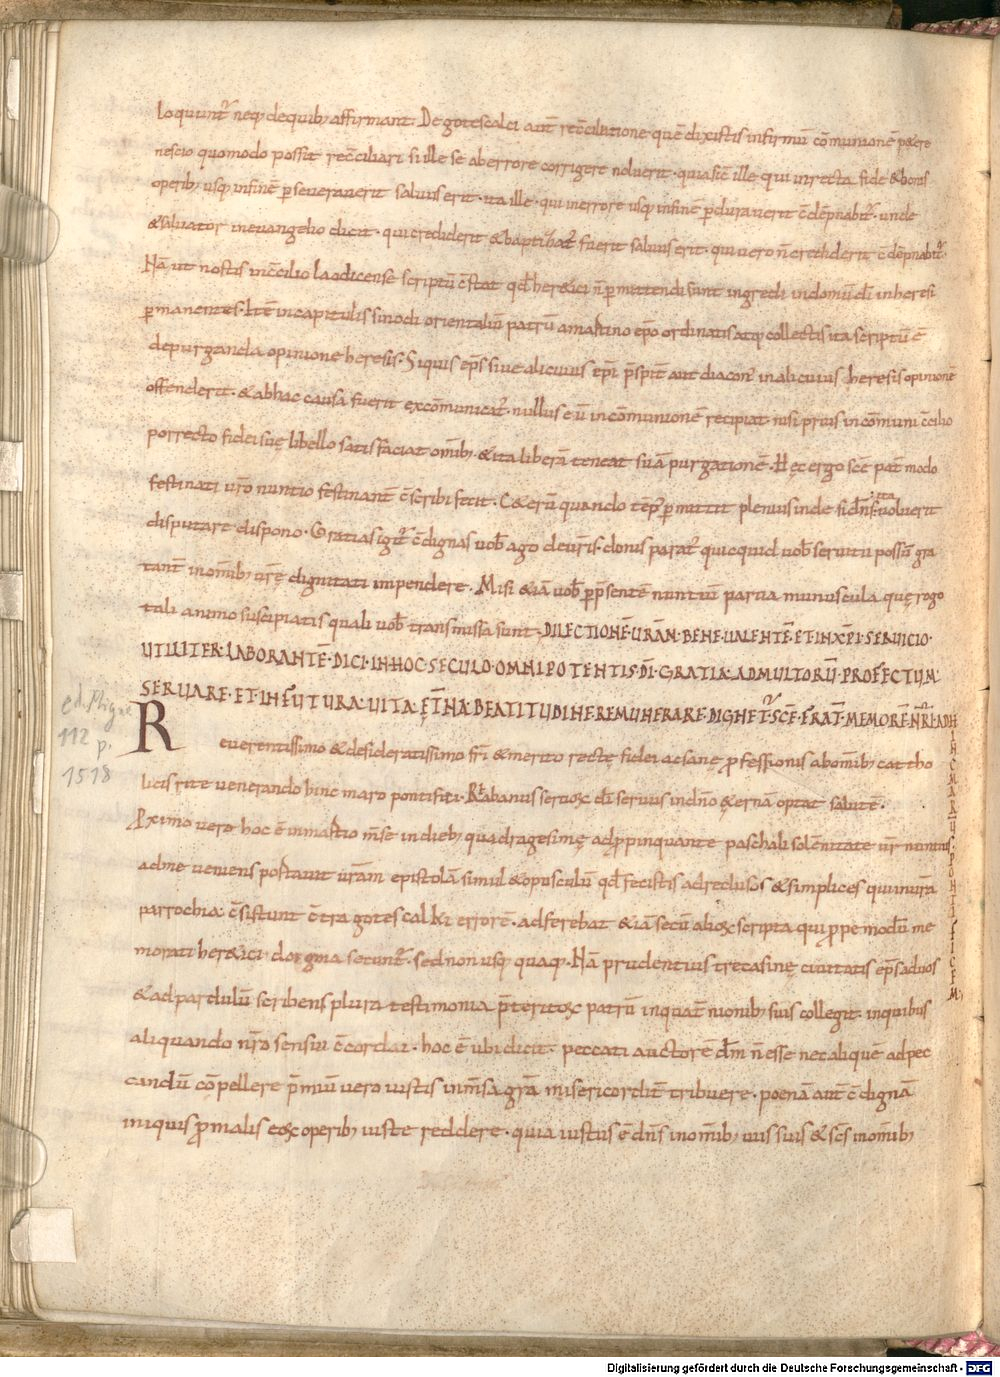 loquunt̃ neq; dequib; affirmant. Degotescalci aut̃ rec̃ciliatione quẽ dixistis infirmũ cõmunionẽ p&ere
nescio quomodo possit rec̃ciliari si ille se aberrore corrigere noluerit. quia sic̃ ille qui inrecta fide & bonis
operib; usq; infinẽ pseuerauerit saluus erit. ita ille. qui inerrore usq; infinẽ pdurauerit c̃dẽpnabit̃. unde
& saluator inevangelio dicit. qui crediderit & baptizat̃ fuerit saluus erit. qui uero ñ crediderit c̃dẽpnabit̃.
Nã ut nostis inc̃cilio laodicense scriptũ c̃stat qđ her&ici ñ pmittendi sunt ingredi indomũ dĩ inheresi
pmanentes. Itẽ incapitulis sinodi orientaliũ patrũ amastino epõ ordinatis atq; collectis ita scriptũ ẽ
depurganda opinione heresis. Siquis ep̃s siue alicuius epĩ p̃sbit̃ aut diacon̉ inalicuius heresis opinionẽ
offenderit. & abhac causa fuerit excõmunicat̃. nullus eũ incõmunionẽ recipiat. nisi prius incõmuni c̃cilio
porrecto fidei suę libello satisfaciat om̃ib; & ita liberã teneat suã purgationẽ. Hęc ergo sc̃e pat̃ modo
festinati ur̃o nuntio festinant̃ c̃scribi fecit. C&erũ quando tẽp̉ pmittit plenius inde si dñs ita uoluerit
disputare dispono. Gratias igit̃ c̃dignas uob̃ ago deur̃is donis parat̃ quicquid uob̃ seruitii possũ gra
tant̃ inom̃ib; ur̃ę dignitati impendere. Misi &iã uob̃ p p̃sentẽ nuntiũ parua munuscula quę rogo
tali animo suscipiatis quali uob̃ transmissa sunt. DILECTIONẼ URÃM BENE UALENTẼ ET IN XPĨ SERUICIO.
UTILITER LABORANTẼ. DICI. IN HOC SECULO. OMNIPOTENTIS DĨ GRATIA. AD MULTORŨ PROFECTUM
SERUARE. ET IN FUTURA UITA ĘT̃NA BEATITUDINE REMUNERARE DIGNET̃. SC̃E FRAT̃. MEMORẼ NR̃I. AD HINCMARUS PONTIFICEM
Reuerentissimo & desideratissimo fr̃i & merito rectę fidei ac sanę pfessionis abom̃ib; cattho
licis rite uenerando hincmaro pontifici. Rhabanus seruox dĩ seruus indño ęternã optat salutẽ.
Pximo uero hoc ẽ inmartio m̃se indieb; quadragesimę adppinquante paschali solẽnitate ur̃ nuntius
adme ueniens portauit ur̃am epistolã simul & opusculũ qđ fecistis ad reclusos & simplices qui inur̃a
parrochia c̃sistunt c̃tra gotescalki errorẽ. adferebat &iã secũ aliox scripta qui ppemodũ me
morati her&ici dogma secunt̃. sed non usq; quaq;. Nã prudentius trecasinę ciuitatis ep̃s aduos
& ad pardulũ scribens plura testimonia p̃teritox patrũ inquat̃nionib; suis collegit. inquibus
aliquando nr̃o sensui c̃cordat. hoc ẽ ubi dicit. peccati auctorẽ dm̃ ñ esse nec aliquẽ adpec
candũ cõpellere p̃miũ uero iustis inm̃sa gr̃a misericordit̃ tribuere. poenã aut̃ c̃dignã
iniquis p malis eox operib; iuste reddere. quia iustus ẽ dñs inom̃ib; uiis suis & sc̃s inom̃ib;
ed. Migne
112 p.
1518
Digitalisierung gefördert durch die Deutsche Forschungsgemeinschaft - DFG